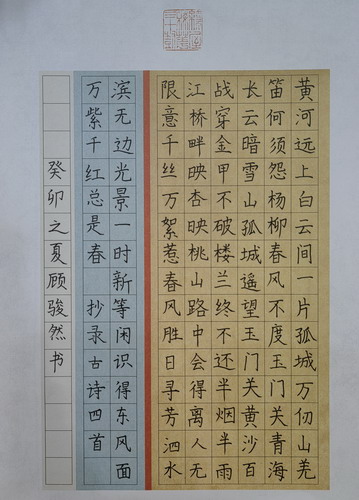 黄河远上白云间一片孤城万仞山羌
笛何须怨杨柳春风不度玉门关青海
长云暗雪山孤城遥望玉门关黄沙百
战穿金甲不破楼兰终不还半烟半雨
江桥畔映杏映桃山路中会得离人无
限意千丝万絮惹春风胜日寻芳泗水
滨无边光景一时新等闲识得东风面
万紫千红总是春 抄录古诗四首
癸卯之夏顾骏然书